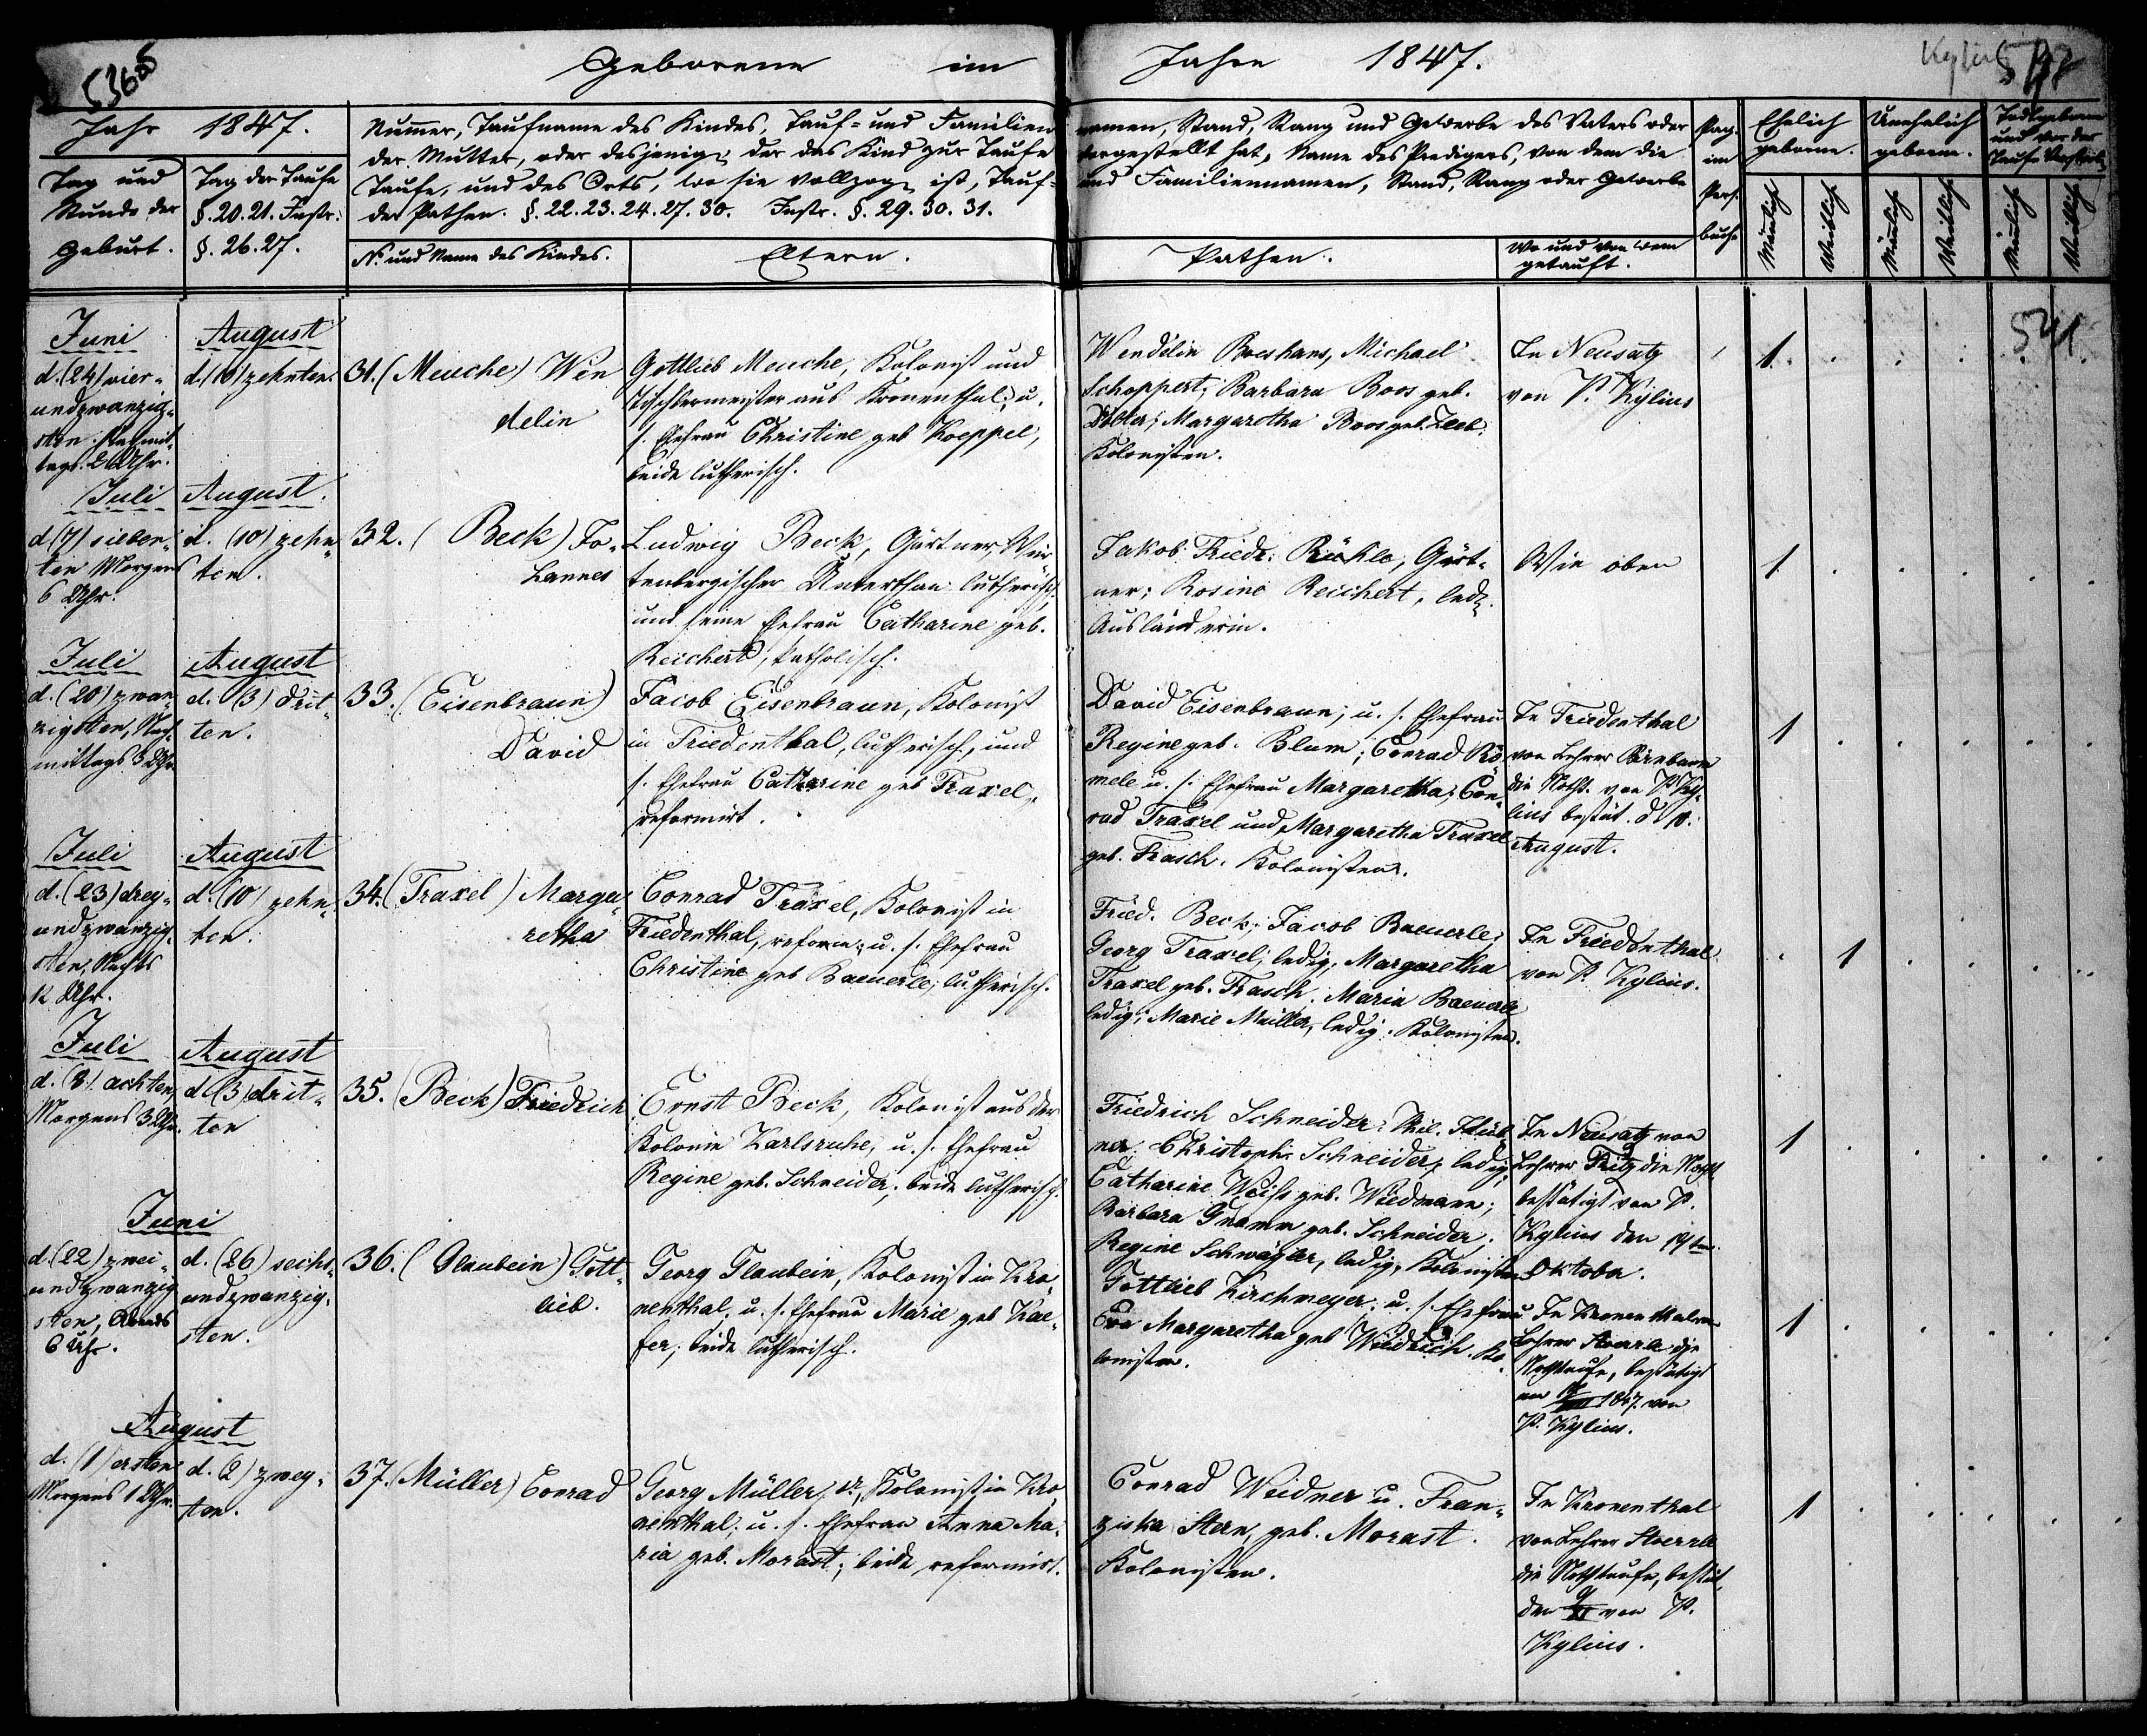 Geborene im Jahre 1847.
Jahr 1847.
Tag und
Stunde der
Geburt.
Tag der Taufe
§. 20. 21. Instr.
§. 26. 27.
Numer, Taufname des Kindes, Tauf- und Familien
namen, Stand, Rang und Gewerbe des Vaters oder
der Mutter, oder desjenigen der das Kind zur Taufe
vorgestellt hat, Name des Predigers, von dem die
Taufe, und des Orts, wo sie vollzogen ist, Tauf-
und Familiennamen, Stand, Rang oder Gewerbe
der Pathen. §. 22. 23. 24. 27. 30. Instr. §. 29. 30. 31.
No. und Name des Kindes.
Eltern.
Pathen.
Wo und von wem
getauft.
Pag.
im
Pers.
buche
Ehelich
geborene.
Unehelich
geborene.
Todtgeborene
und vor der
Taufe Verstorb.
Mänlich
Weiblich
Mänlich
Weiblich
Mänlich
Weiblich
541.
Juni
d. (24) vier-
undzwanzig-
sten. Nachmit-
tags. 2 Uhr.
August
d. (10) zehnten.
31. (Meuche) Wen
delin
Gottlieb Meuche, Kolonist und
Tischlermeister aus Kronenthal; u.
s. Ehefrau Christine geb Koeppel,
beide lutherisch.
Wendelin Boeshans, Michael
Schoppert; Barbara Boos geb.
Margaretha Boos geb.
Kolonisten.
In Neusatz
von P. Kylius
1
Juli
d (7) sieben-
ten Morgens
6 Uhr.
August.
d. (10) zehn-
ten.
32. (Beck) Jo-
hannes
Ludwig Beck, Gärtner, Wür
tenbergischer Unterthan lutherisch,
und seine Ehefrau Catharine geb.
Reichert, katholisch.
Jakob Friedr. Rühle, Gärt-
ner; Rosine Reichert, led.
Ausländerin.
Wie oben
1
Juli
d. (20) zwan-
zigsten, Nach-
mittags 3 Uhr
August
d. (3) drit-
ten.
33. (Eisenbraun)
David
Jacob Eisenbraun, Kolonist
in Friedenthal, lutherisch, und
s. Ehefrau Catharine geb Traxel,
reformirt.
David Eisenbraun; u. s. Ehefrau
Regine geb. Blum; Conrad Rö-
mele u. s. Ehefrau Margaretha; Con-
rad Traxel und Margaretha Traxel
geb. Frasch. Kolonisten.
In Friedenthal
von Lehrer Birnbaum
die Notht. von P. Ky-
lius bestät. d. 10.
August.
1
Juli
d. (23) drey-
undzwanzig-
sten, Nachts
12 Uhr.
August
d. (10) zehn-
ten.
34. (Traxel) Marga-
retha
Conrad Traxel, Kolonist in
Friedenthal, reform; u. s. Ehefrau
Christine geb Baeuerle; lutherisch.
Fried. Beck; Jacob Baeuerle;
Georg Traxel, ledig; Margaretha
Traxel geb. Frasch. Maria Baeuerle
ledig; Marie Müller, ledig. Kolonisten.
In Friedenthal
von P. Kylius.
1
Juli
d. (8) achten,
Morgens 3 Uhr.
August
d (3) drit-
ten
35. (Beck) Friedrich
Ernst Beck, Kolonist aus der
Kolonie Karlsruhe, u. s. Ehefrau
Regine geb. Schneider, beide lutherisch.
Friedrich Schneider;
Christoph Schneider, ledig;
Catharine Weiss geb. Wiedmann;
Barbara Gramm geb. Schneider;
Regine Schwägler, ledig, Kolonisten
In Neusatz von
Lehrer Fritz die Notht.
bestätigt von P.
Kylius den 19ten
Oktober.
1
Juni
d. (22) zwei-
undzwanzig
sten, Abends
6 Uhr.
d. (26) sechs-
undzwanzig-
sten.
36. (Glaubein) Gott-
lieb.
Georg Glaubein, Kolonist in Kro-
nenthal, u. s. Ehefrau Marie geb Kae-
fer; beide lutherisch.
Gottlieb Kirchmeyer; u. s. Ehefrau
Eva Margaretha geb Weidrich. Ko-
lonisten.
In Kronenthal von
Lehrer Stoerrle die
Nothtaufe, bestätigt
1847. von
P. Kylius.
1
August
d. (1) ersten
Morgens 1 Uhr.
d. (2) zwey-
ten.
37. (Müller) Conrad
Georg Müller, Kolonist in Kro
nenthal; u. s. Ehefrau Anna Ma-
ria geb. Morast; beide reformirt.
Conrad Weidner u. Fran-
ziska Stern, geb. Morast.
Kolonisten.
In Kronenthal
von Lehrer Stoerrle
die Nothtaufe, bestät.
den von P.
Kylius.
1